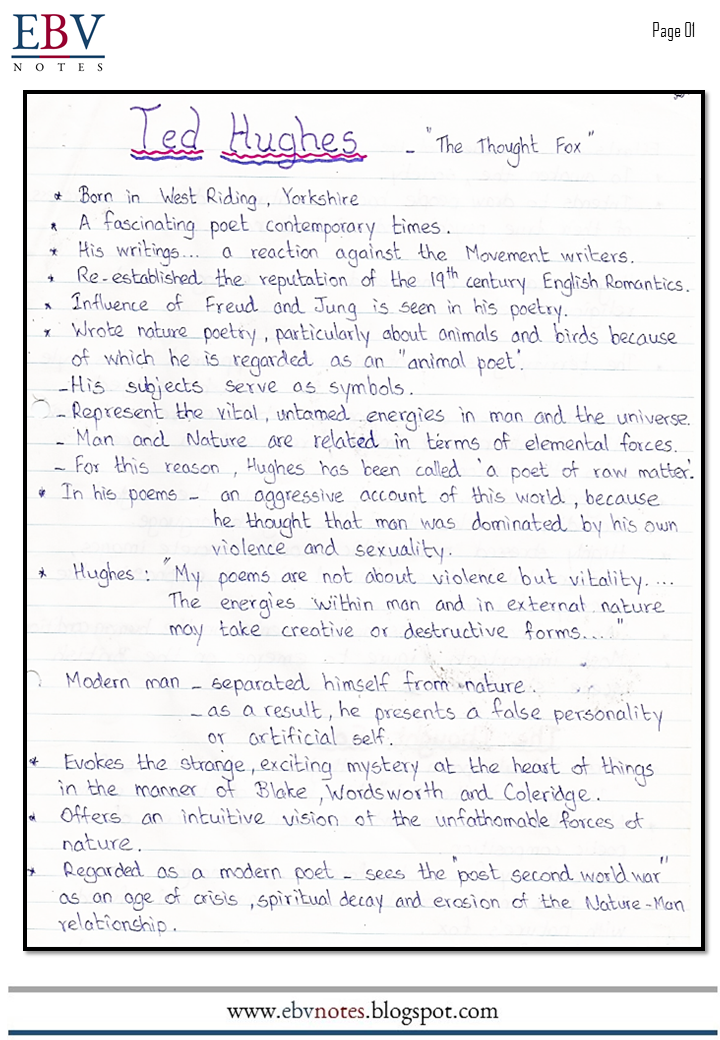 EBV
NOTES
Page 01
Ted Hughes - "The Thought Fox"
* Born in West Riding, Yorkshire
* A fascinating poet contemporary times.
* His writings... a reaction against the Movement writers.
* Re-established the reputation of the 19th century English Romantics.
* Influence of Freud and Jung is seen in his poetry.
* Wrote nature poetry, particularly about animals and birds because
of which he is regarded as an "animal poet'.
- His subjects serve as symbols.
- Represent the vital, untamed energies in man and the universe.
- Man and Nature are related in terms of elemental forces.
- For this reason, Hughes has been called 'a poet of raw matter'.
* In his poems - an aggressive account of this world, because
he thought that man was dominated by his own
violence and sexuality.
* Hughes : "My poems are not about violence but vitality....
The energies within man and in external nature
may take creative or destructive forms..."
Modern man - separated himself from nature.
- as a result, he presents a false personality
or artificial self.
* Evokes the strange, exciting mystery at the heart of things
in the manner of Blake, Wordsworth and Coleridge.
* Offers an intuitive vision of the unfathomable forces of
nature.
* Regarded as a modern poet - sees the "post second world war"
as an age of crisis, spiritual decay and erosion of the Nature-Man
relationship.
www.ebvnotes.blogspot.com